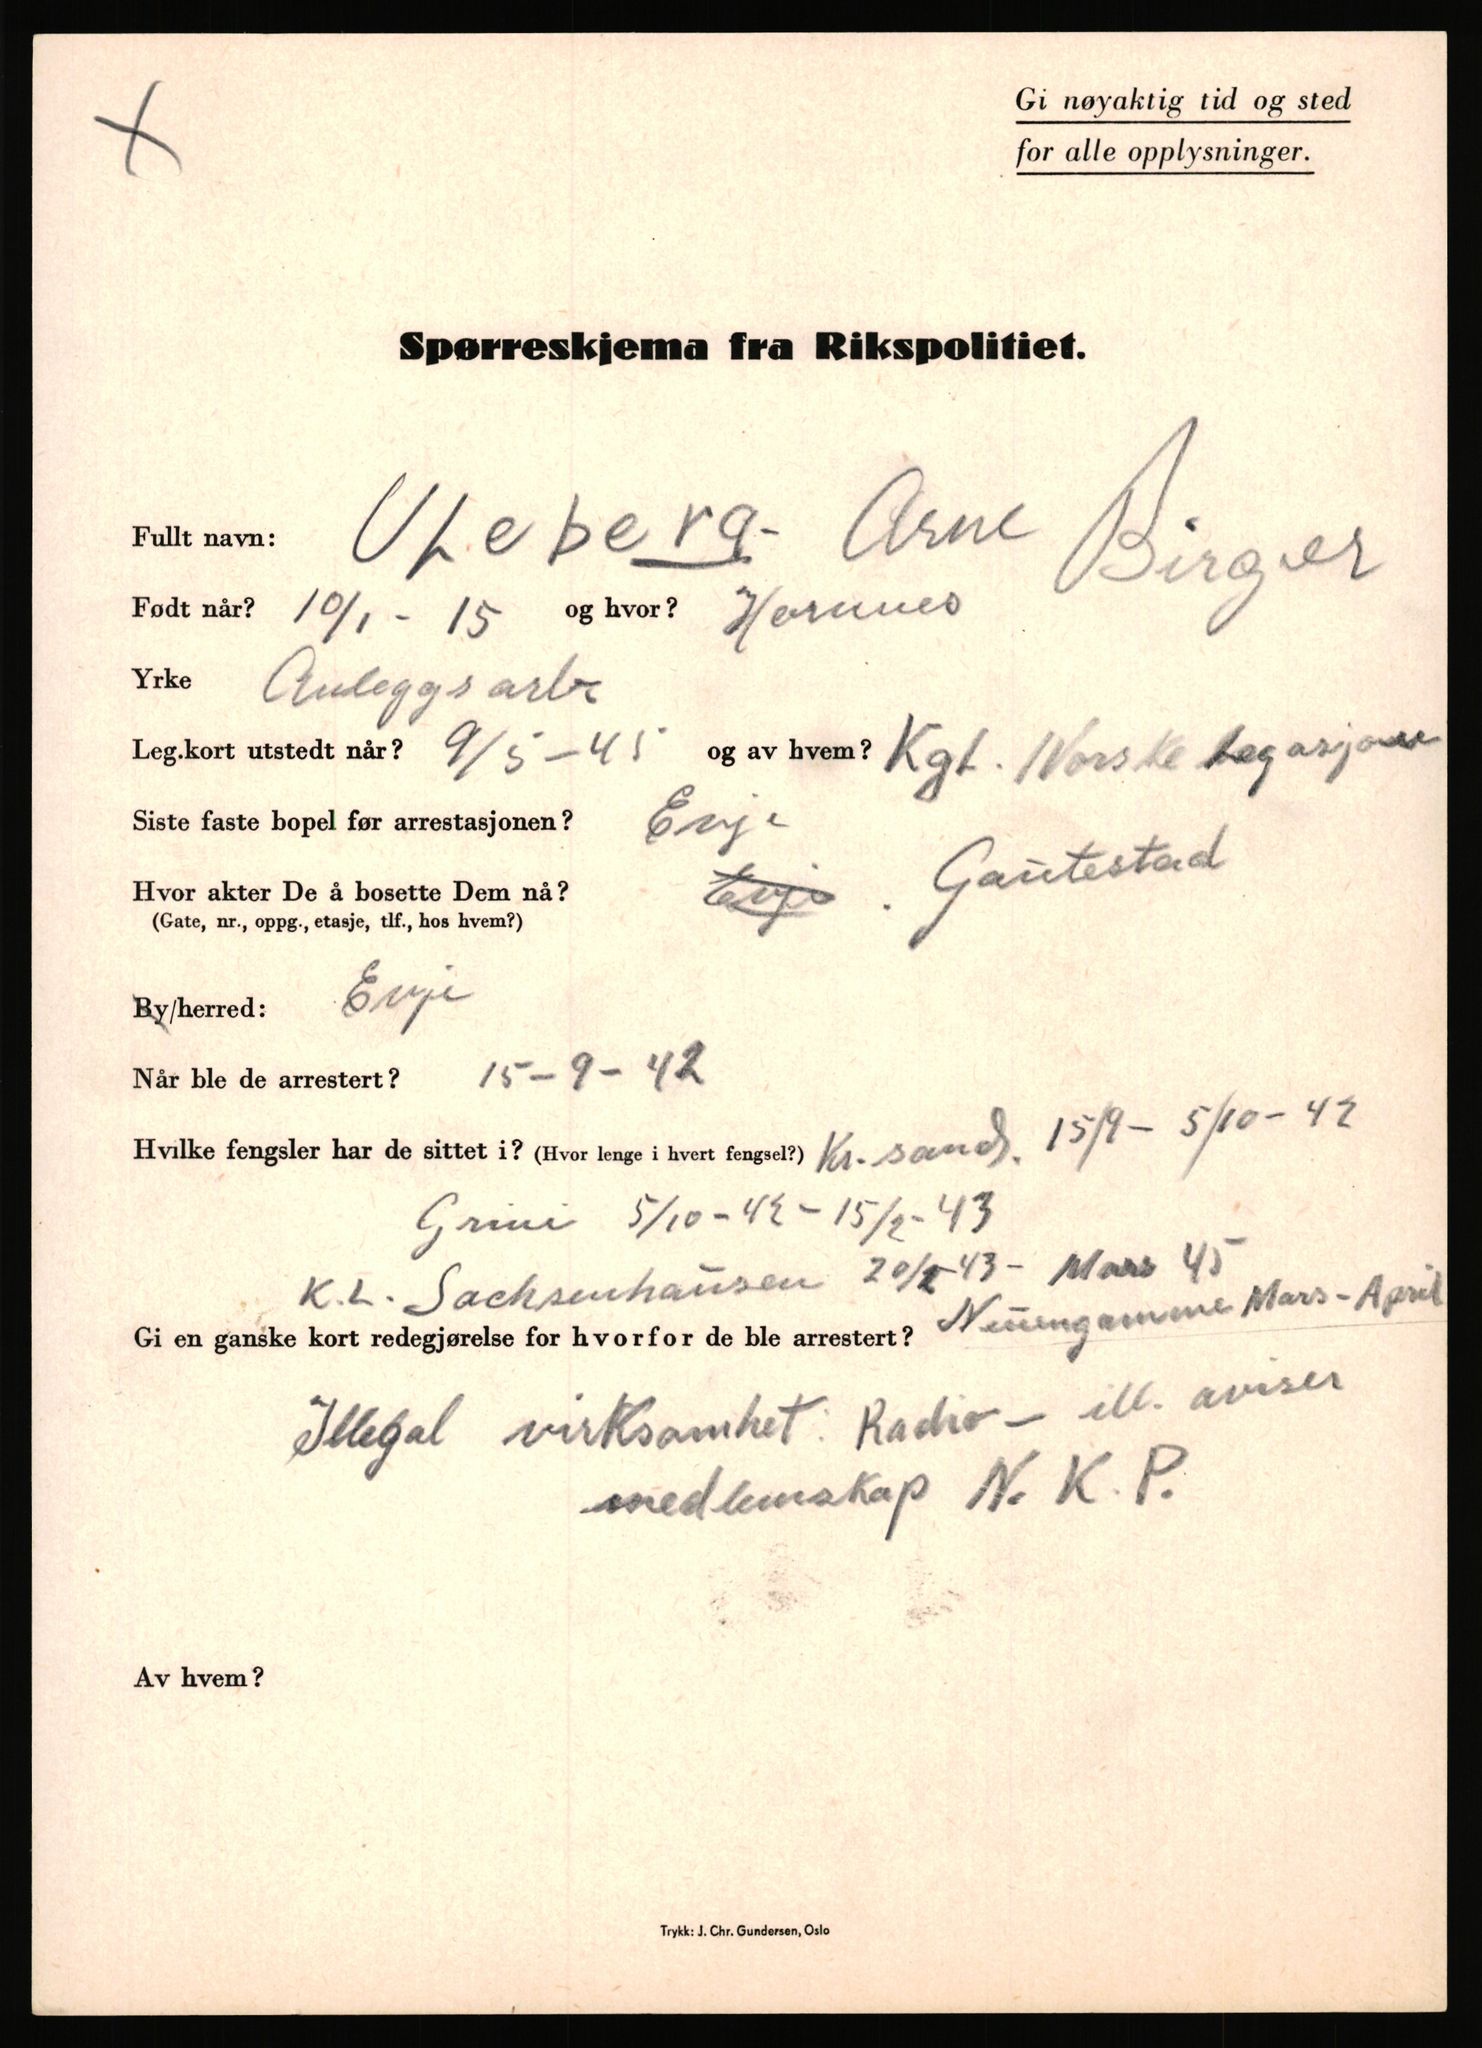 Gi nøyaktig tid og sted
for alle opplysninger.
Spørreskjema fra Rikspolitiet.
Fullt navn: Uleberg Arne Birger
Født når? 10/1 - 15 og hvor? Hornnes
Yrke Anleggsarb
Leg.kort utstedt når? 9/5 - 45 og av hvem? Kgl. Norske Legasjon
Siste faste bopel før arrestasjonen? Evje
Hvor akter De å bosette Dem nå? Evje . Gautestad
(Gate, nr., oppg., etasje, tlf., hos hvem?)
By/herred: Evje
Når ble de arrestert? 15 - 9 - 42
Hvilke fengsler har de sittet i? (Hvor lenge i hvert fengsel?) Kr. sand. 15/9 - 5/10 - 42
Grini 5/10 - 42 - 15/2 - 43
K.L. Sachsenhausen 20/2 43 - Mars 45
Gi en ganske kort redegjørelse for hvorfor de ble arrestert? Neuengamme Mars - April
Illegal virksomhet: Radio - ill. aviser
medlemskap N. K. P.
Av hvem?
Trykk: J. Chr. Gundersen, Oslo